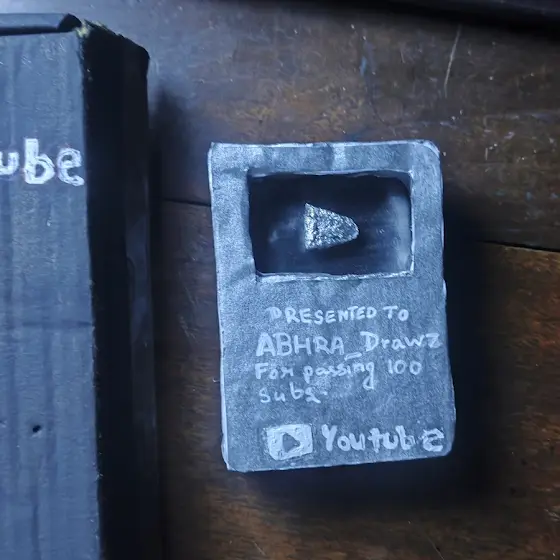 ube
PRESENTED TO
ABHRA_Drawz
For passing 100
Subs.
Youtube